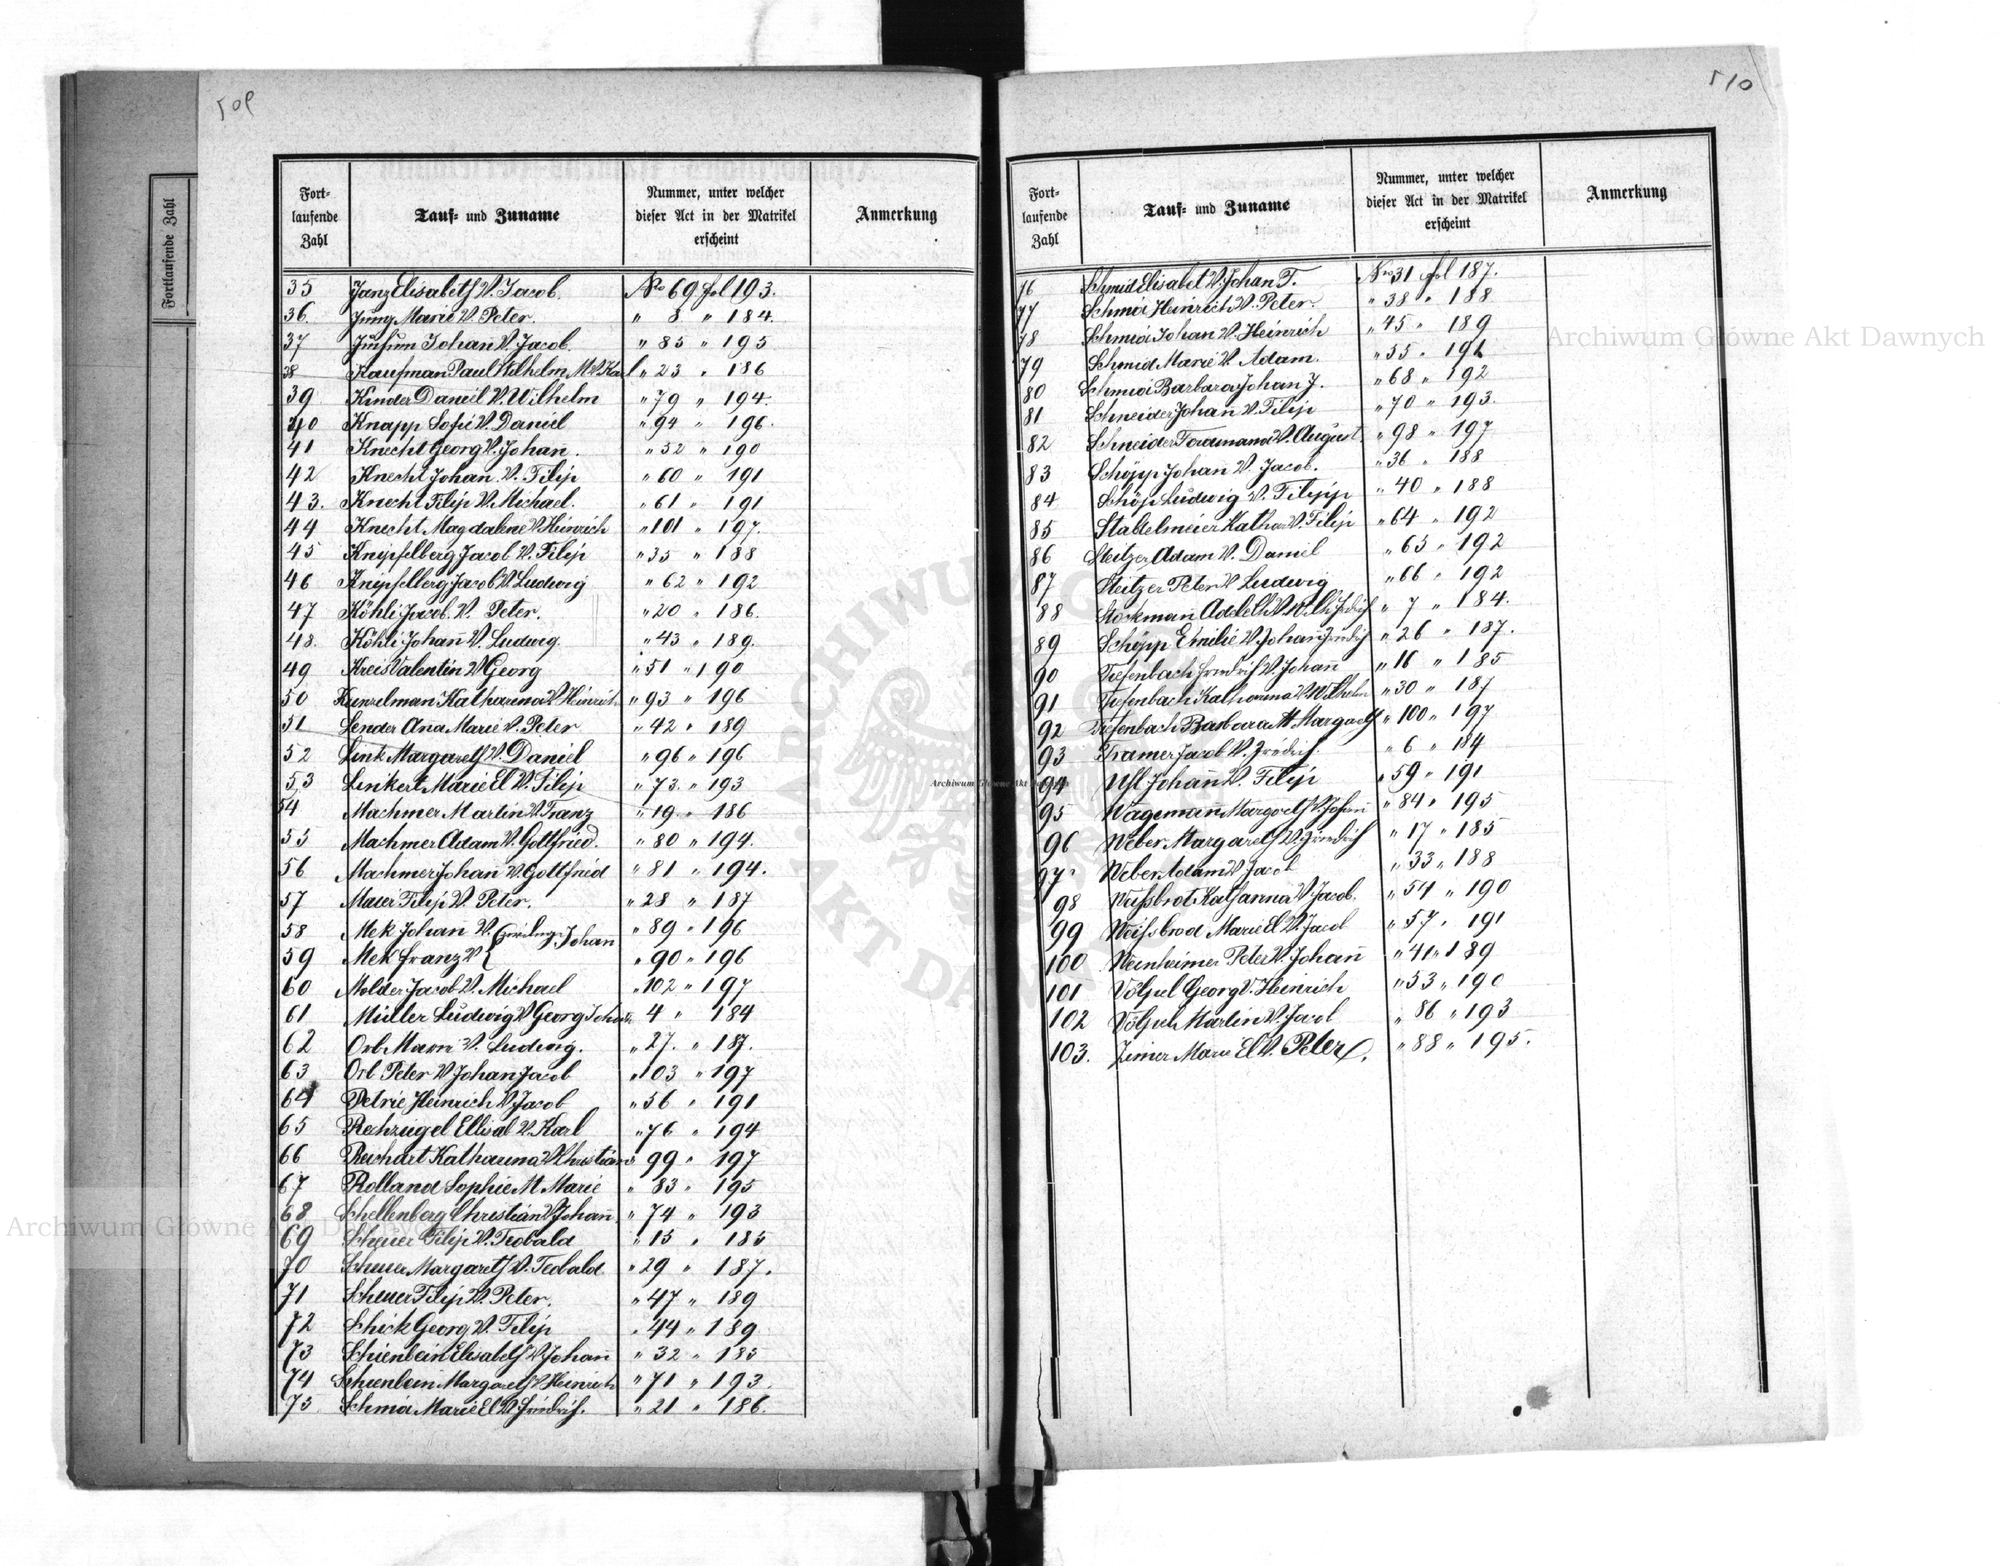 509
Fortlaufende Zahl
Fort-
laufende
Zahl
Tauf- und Zuname
Nummer, unter welcher
dieser Act in der Matrikel
erscheint
Anmerkung
35 Janz Elisabeth V. Jacob. No 69 fol 193.
36. Jung Marie V. Peter. " 8 " 184.
37 Johan V. Jacob. " 85 " 195
38 Kaufman Paul Wilhelm M V Karl " 23 " 186
39 Kinder Daniel V. Wilhelm " 79 " 194.
40 Knapp Sofie V. Daniel " 94 " 196.
41 Knecht Georg V. Johan̄. " 52 " 190
42 Knecht Johan V. Filip " 60 " 191
43. Knecht Filip V. Michael. " 61 " 191
44 Knecht Magdalene V Heinrich " 101 " 197.
45 Knipfelberg Jacob V. Filip " 35 " 188
46 Knipfelberg Jacob V Ludwig " 62 " 192
47 Köhli Jacob V. Peter. " 20 " 186.
48. Köhli Johan̄ V. Ludwig. " 43 " 189.
49 Kreis Valentin V Georg " 51 " 190
50 Kunzelman Katharina V Heinrich " 93 " 196
51 Lender Ana Marie V. Peter " 42 " 189
52 Link Margareth V. Daniel " 96 " 196
53 Linkert Marie El V. Filip " 73. " 193
54 Machmer Martin V. Franz " 19. " 186
55 Machmer Adam V. Gottfried. " 80 " 194.
56 Machmer Johan̄ V. Gottfried " 81 " 194.
57 Maier Filip V. Peter. " 28 " 187
58 Mek Johan̄ V. Johan̄ " 89 " 196
59 Mek Franz V " 90 " 196
60 Molder Jacob V. Michael " 102 " 197
61 Müller Ludwig V Georg Johan " 4 " 184
62 Orb Marie V. Ludwig. " 27. " 187.
63 Orb Peter V Johan Jacob " 103 " 197
64 Petrie Heinrich V Jacob " 56 " 191
65 Rechzügel Ellisab V. Karl " 76 " 194
66 Reichart Katharina V Christian " 99 " 197
67 Rolland Sophie M Marie " 83 " 195
68 Schellenberg Christian V Johan̄. " 74 " 193
69 Scheuer Filip V. Teobald " 15 " 185
70 Scheuer Margareth V. Teobald. " 29 " 187.
71 Scheuer Filip V. Peter. " 47 " 189
72 Schick Georg V. Filip " 44 " 189
73 Schienbein Elisabeth V Johan̄ " 32 " 185
74 Schienbein Margareth V Heinrich " 71 " 193.
75 Schmid Marie El V Friedrich. " 21 " 186.
510
Fort-
laufende
Zahl
Tauf- und Zuname
Nummer, unter welcher
dieser Act in der Matrikel
erscheint
Anmerkung
76 Schmid Elisabet V. Johan F. Nro 31 fol 187.
77 Schmid Heinrich V. Peter. " 38 " 188
78 Schmid Johan V. Heinrich " 45 " 189
79 Schmid Marie V. Adam. " 55 " 191
80 Schmid Barbara Johan J. " 68 " 192
81 Schneider Johan̄ V. Filip " 70 " 193.
82 Schneider Ferdinand V. August. " 98 " 197
83 Schöpp Johan̄ V. Jacob. " 36 " 188
84 Schöp Ludwig V. Filipp " 40 " 188
85 Stablmeier Katha V. Filip " 64 " 192
86 Steitzer Adam V. Daniel " 65 " 192
87 Steitzer Peter V Ludwig " 66 " 192
88 Stockman " 7 " 184.
89 Schöpp Emilie V. Johan Friedrich " 26 " 187.
90 Tiefenbach Friedrich V. Johan̄ " 16 " 185
91 Tiefenbach Katharina V. Wilhelm " 30 " 187
92 Tiefenbach Barbara M Margareth " 100 " 197
93 Kramer Jacob V. Friedrich. " 6 " 184
94 Uhl Johan̄ V. Filip " 59 " 191
95 Wagemann Margareth V. Johan̄ " 84 " 195
96 Weber Margareth V. Friedrich " 17 " 185
97 Weber Adam V Jacob " 33 " 188
98 Weissbrot Katharina V. Jacob. " 54 " 190
99 Weissbrod Marie El V. Jacob " 57 " 191
100 Weinheimer Peter V. Johan̄ " 41 " 189
101 Völpel Georg V. Heinrich " 53 " 190
102 Völpel Martin V. Jacob " 86 " 193
103. Zeimer Marie El V. Peter. " 88 " 195.
Archiwum Główne Akt Dawnych
Archiwum Główne Akt Dawnych
Archiwum Główne Akt Dawnych